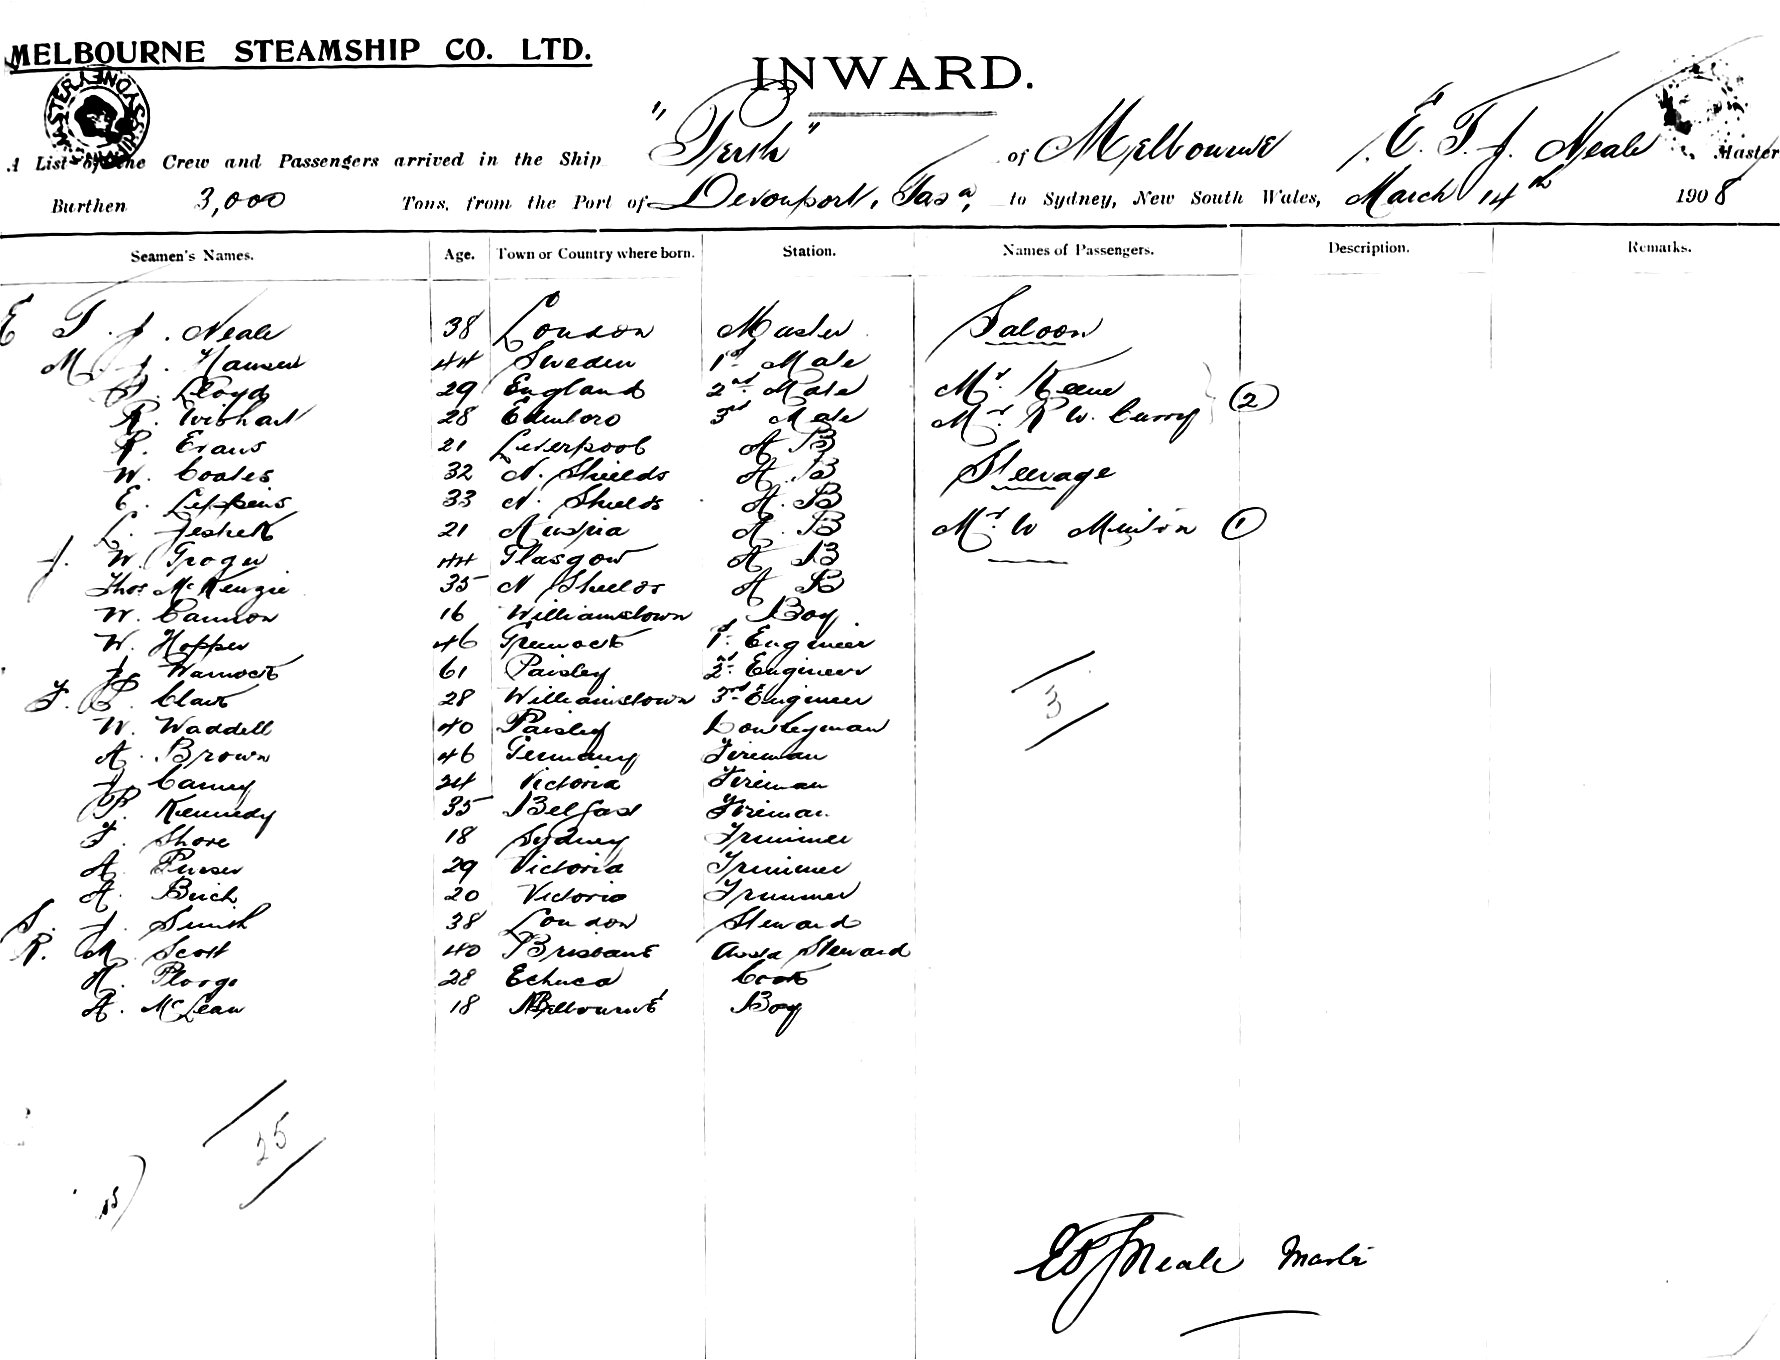 MELBOURNE STEAMSHIP CO. LTD.
INWARD.
A List of the Crew and Passengers arrived in the Ship "Perth" of Melbourne E. T. J. Neale Master
Burthen 3,000 Tons, from the Port of Devonport, Tasa, to Sydney, New South Wales, March 14th 1908
Seamen's Names. Age. Town or Country where born. Station. Names of Passengers. Description. Remarks.
E T. J. Neale 38 London Master Saloon
M J. Hansen 44 Sweden 1st Mate
Lloyd 29 England 2nd Mate Mr. Keene
R. Wishart 28 Edinboro 3rd Mate Mr. R W. Curry (2)
R. Evans 21 Liverpool A B
W. Coates 32 N. Shields A. B Steerage
E. 33 N. Shields A. B
L. 21 A. B Mr. W Minton (1)
J. W. 44 Glasgow A B
Thos. McKenzie 35 N Shields A B
W. Cannon 16 Williamstown Boy
W. Hopper 46 Greenock 1st Engineer
J. Warnock 61 Paisley 2nd Engineer
28 Williamstown 3rd Engineer
W. Waddell 40 Paisley Donkeyman
A. Brown 46 Germany Fireman
J. Carney 24 Victoria Fireman
P. Kennedy 35 Belfast Fireman
F. Shore 18 Sydney Trimmer
A. Purser 29 Victoria Trimmer
A. Birch 20 Victoria Trimmer
S. J. Smith 38 London Steward
R. M. Scott 40 Brisbane Asst Steward
H. 28 Echuca Cook
A. McLean 18 Melbourne Boy
3
25
E T J Neale Master